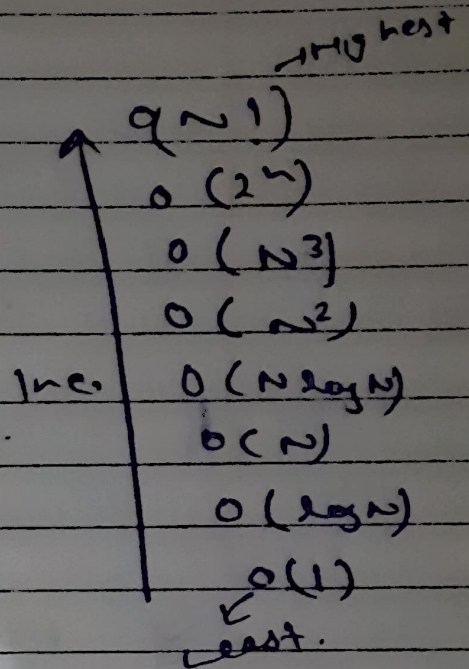 Highest
O(N!)
O(2^n)
O(N^3)
O(N^2)
Inc. O(N log N)
O(N)
O(log N)
O(1)
Least.